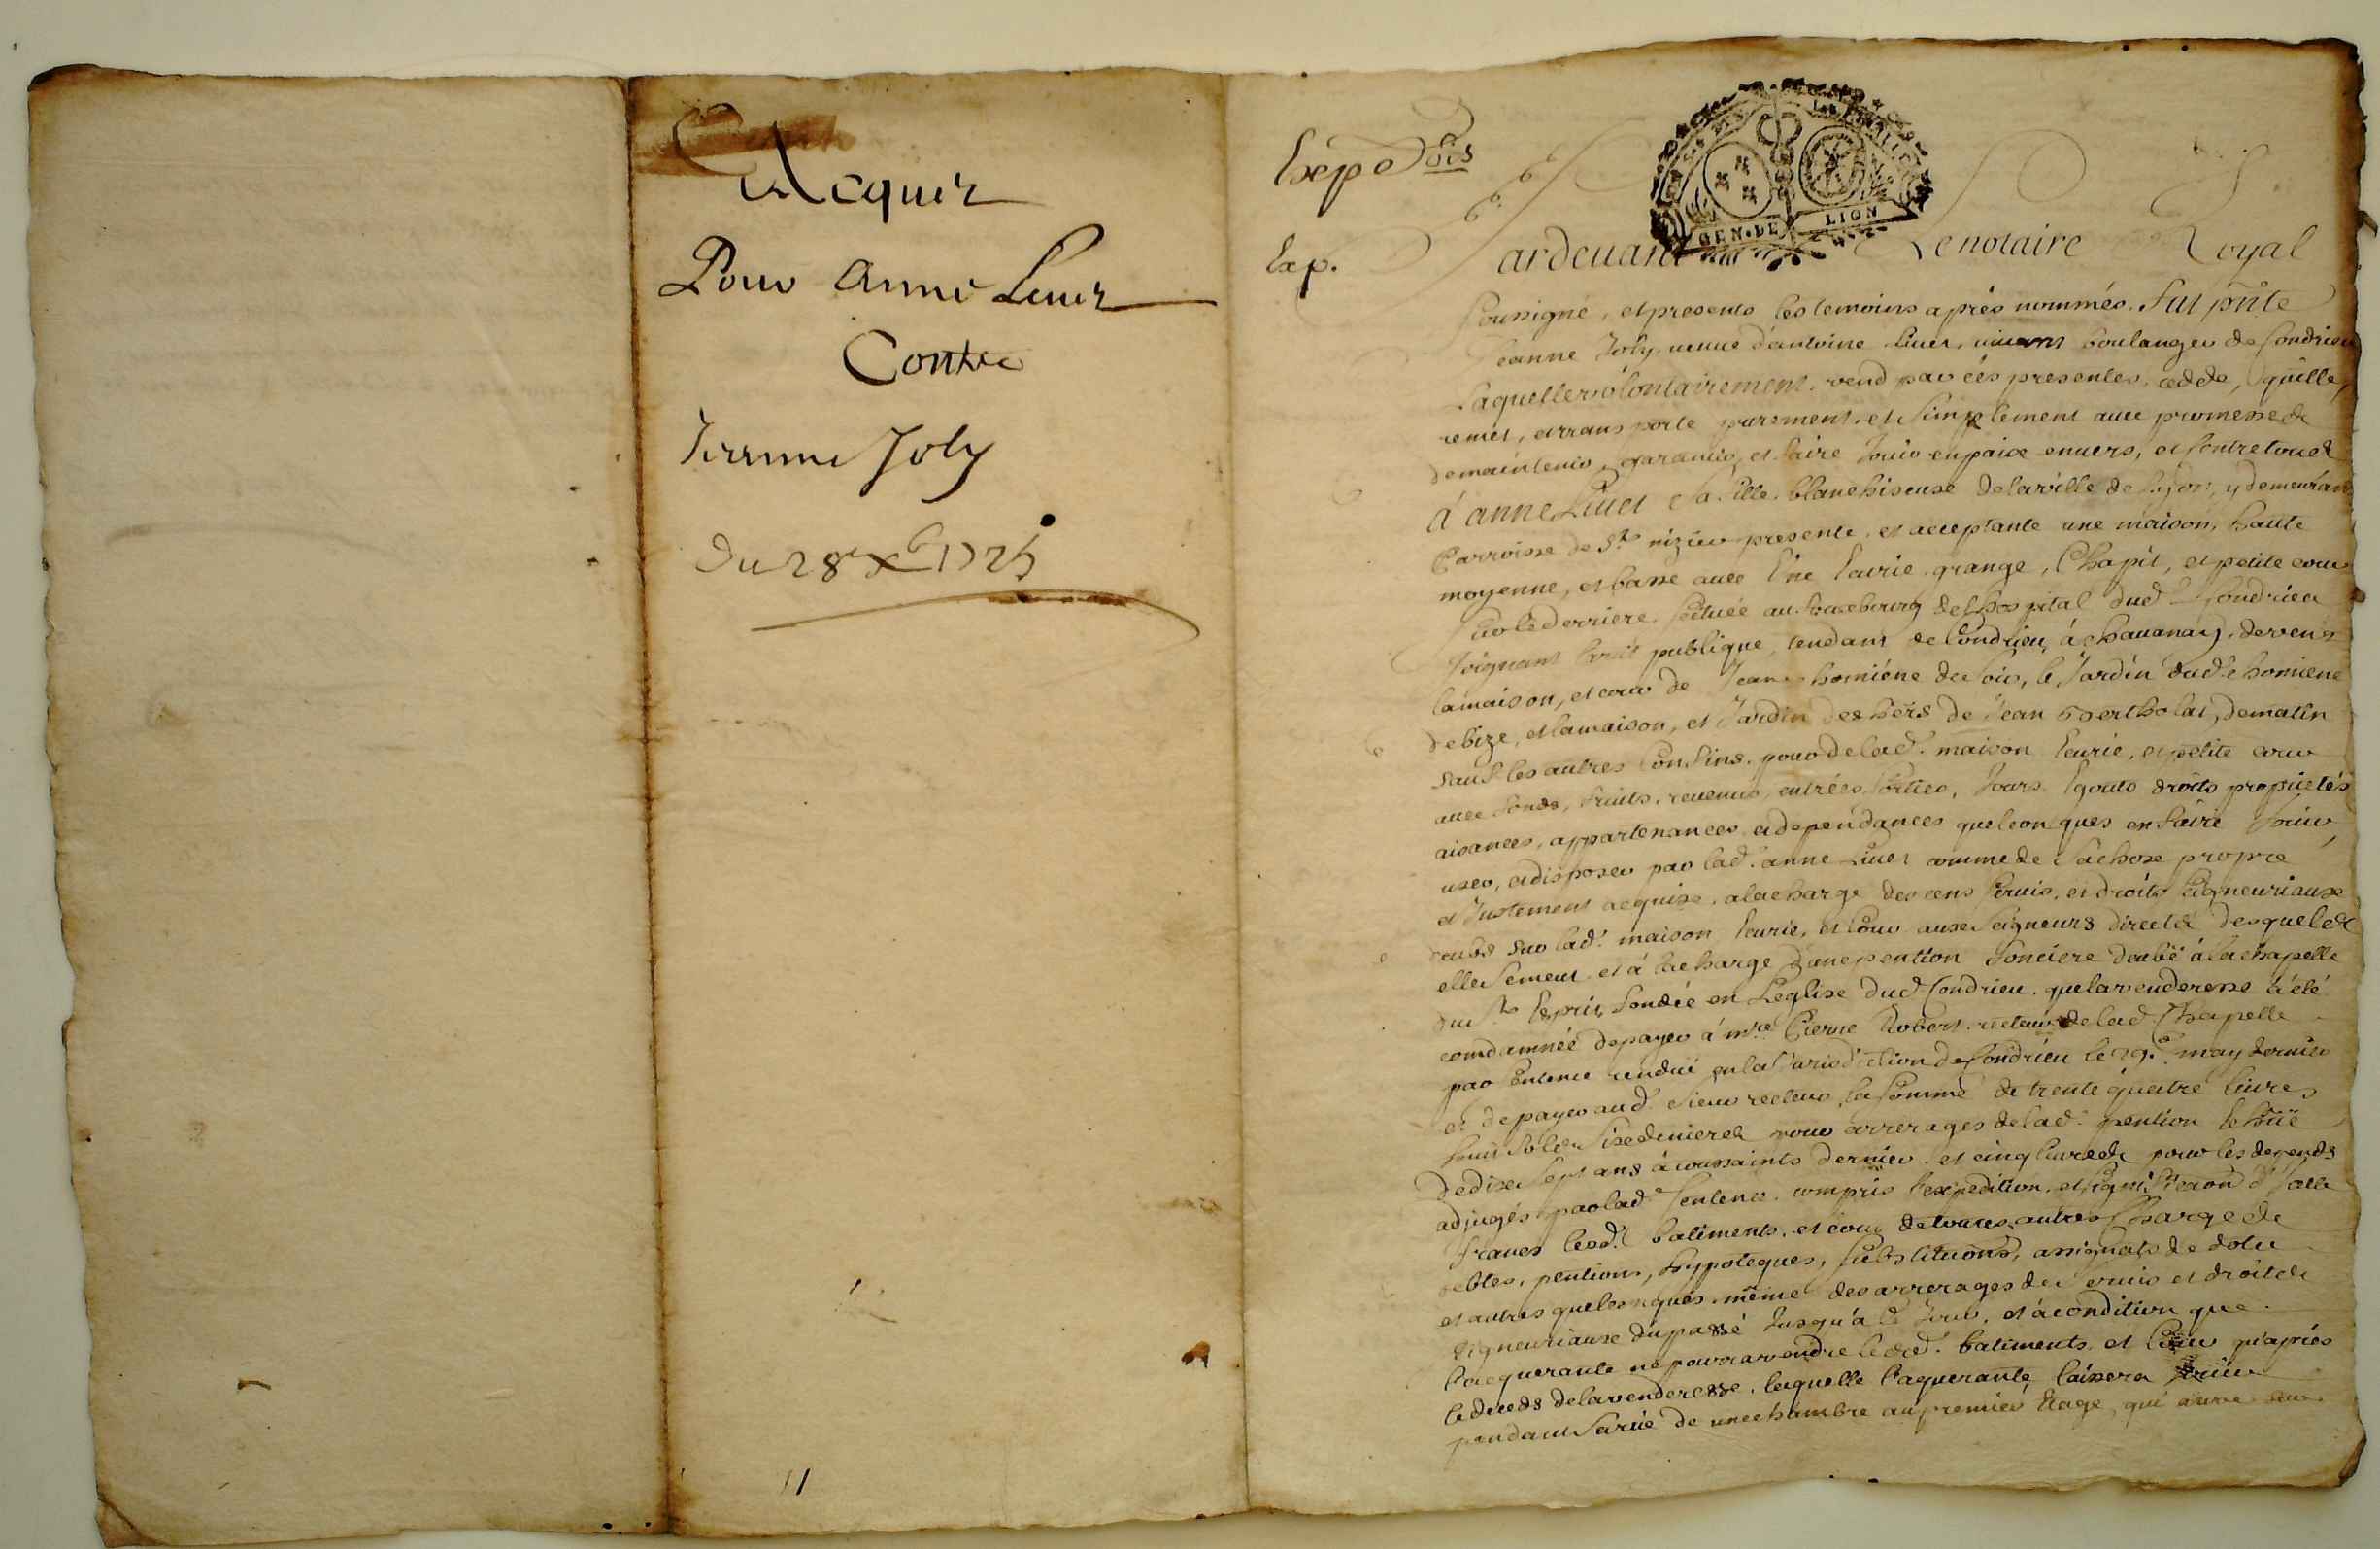 Acquis
Pour Anne Liuet
Contre
Jeanne Joly
Du 28e Xb 1725
Exp.
GEN. DE LION
Pardeuant Le notaire Royal
soussigné, et presents les temoins aprés nommés. Fut pnte
Jeanne Joly veuue d'antoine Liuet, viuant boulanger de Condrieu
Laquelle volontairement, vend par ces presentes, cedde, quitte,
remet, et transporte purement, et simplement auec promesse de
de maintenir, garantir, et faire Jouir en paix enuers, et contre tous
à anne Liuet sa fille blanchiseuse de la ville de Lyon, y demeurant
Parroisse de St. nizier presente, et acceptante une maison, haute
moyenne, et basse auec Une Ecurie, grange, Chapit, et petite cour
sur le derriere, scituée au fauxbourg de l'hospital dud. Condrieu
Joignant la rüe publique, tendant de Condrieu, à chauanay, de vent
la maison, et cour de Jean homiéne de soir, le Jardin dud. homiene
de bize, et la maison, et Jardin des hers de Jean Bertholat, de matin
sauf les autres Confins. pour de lad. maison Ecurie, et petite cour
auec fonds, fruits, reuenus, entrées, sorties, Jours, Egouts droits proprietés
aisances, appartenances et dependances quelconques en faire Jouir,
user, et disposer par lad. anne Liuet comme de sa chose propre
et Justement acquise, a la charge des cens seruis, et droits seigneuriaux
deubs sur lad. maison Ecurie, et Cour aux seigneurs directs desquels
elle se meut, et à la charge d'une pention fonciere deubë à la chapelle
du St. Esprit, fondée en L'eglise dud. Condrieu, que la venderesse à été
comdamnée de payer à mre Pierre Robert recteur de lad. Chapelle
par sentence rendüe en la Jurisdiction de Condrieu le 29e. may dernier
et de payer aud. sieur recteur, la somme de trente quatre liures
huit sols six deniers pour arrerages de lad. pention
de dix sept ans à toussaints dernier, et cinq liures pour les depends
adjugés par lad. sentence, compris l'expedition, et
francs lesd. batiments, et cour de toutes autres Charge de
debtes, pentions, hypoteques, substitutions, assignats de dotte
et autres quelconques, même des arrerages de seruis et droits
seigneuriaux du passé Jusqu'à ce Jour, et à condition que
l'acquerante ne pourra vendre lesd. batiments, et Cour qu'aprés
le deceds de la venderesse, laquelle l'aquerante, laissera Jouir
pendant sa vie de une chambre au premier Etage, qui